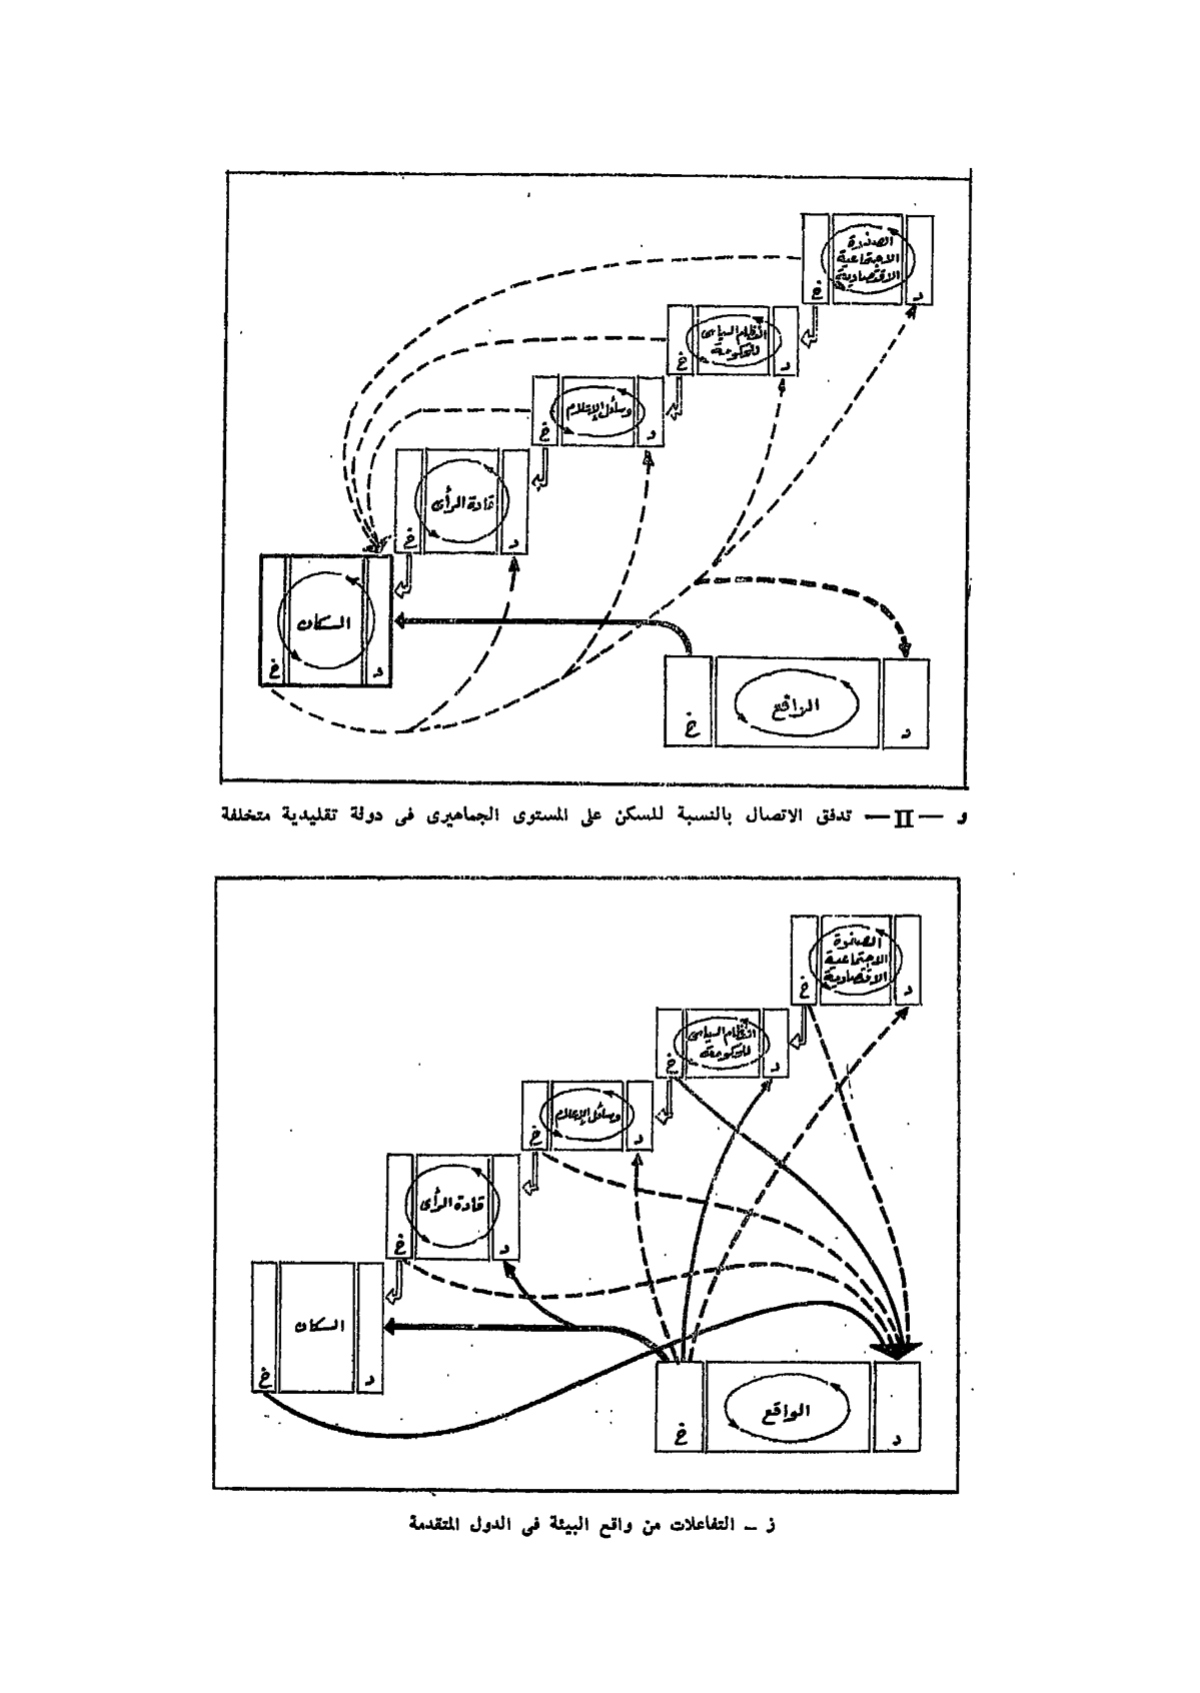 الصفوة
الاجتماعية
الاقتصادية
خ
د
النظام السياسى
للحكومة
خ
د
وسائل الإعلام
خ
د
قادة الرأى
خ
د
السكان
خ
د
الواقع
خ
د
و — II — تدفق الاتصال بالنسبة للسكن على المستوى الجماهيرى فى دولة تقليدية متخلفة
الصفوة
الاجتماعية
الاقتصادية
خ
د
النظام السياسى
للحكومة
خ
د
وسائل الإعلام
خ
د
قادة الرأى
خ
د
السكان
خ
د
الواقع
خ
د
ز — التفاعلات من واقع البيئة فى الدول المتقدمة